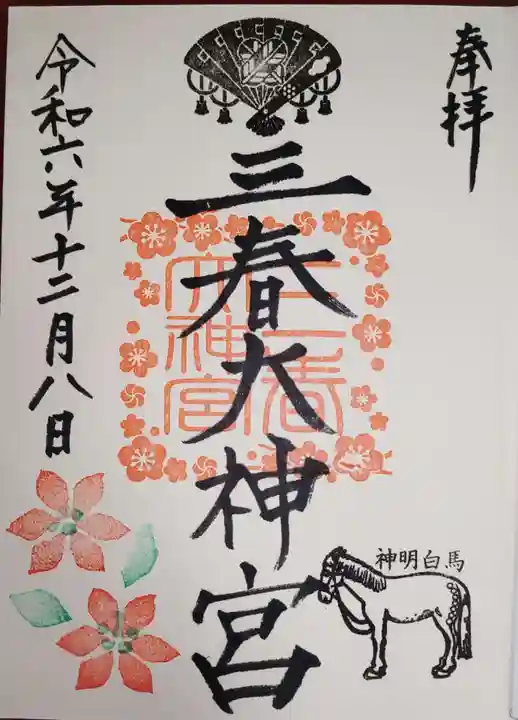 奉拝
三春大神宮
三春
大神宮
神明白馬
令和六年十二月八日